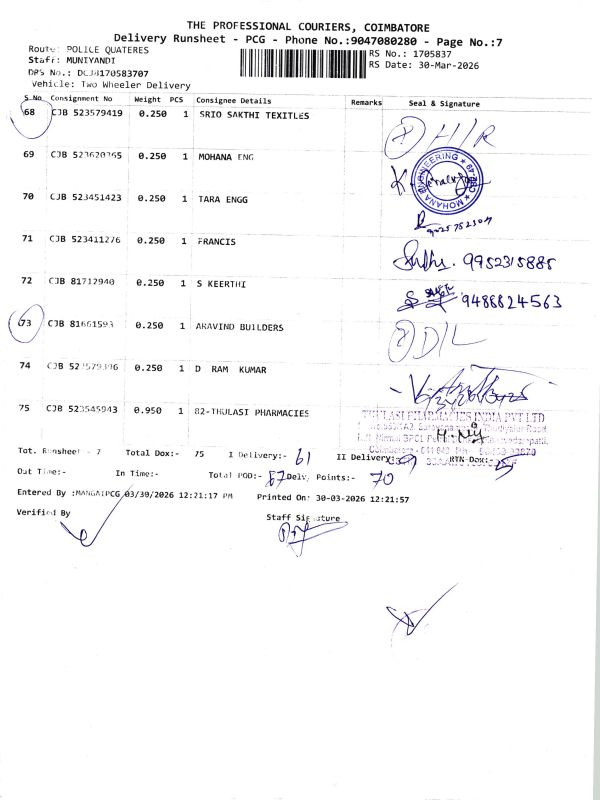 THE PROFESSIONAL COURIERS, COIMBATORE
Delivery Runsheet - PCG - Phone No.:9047080280 - Page No.:7
Route: POLICE QUATERES
RS No.: 1705837
Staff: MUNIYANDI
RS Date: 30-Mar-2026
DRS No.: DCJB170583707
Vehicle: Two Wheeler Delivery
S No Consignment No Weight PCS Consignee Details Remarks Seal & Signature
68 CJB 523579419 0.250 1 SRIO SAKTHI TEXITLES
69 CJB 523620365 0.250 1 MOHANA ENG
MOHANA ENGINEERING
70 CJB 523451423 0.250 1 TARA ENGG
71 CJB 523411276 0.250 1 FRANCIS
9952315885
72 CJB 81712940 0.250 1 S KEERTHI
9488824563
73 CJB 81661593 0.250 1 ARAVIND BUILDERS
D/L
74 CJB 523579396 0.250 1 D RAM KUMAR
75 CJB 523545943 0.950 1 82-THULASI PHARMACIES
THULASI PHARMACIES INDIA PVT LTD
Tot. Runsheet - 7 Total Dox:- 75 I Delivery:- 61 II Delivery:- RTN-Dox:-
Out Time:- In Time:- Total POD:- 67 Delv. Points:- 70
Entered By :MANGAIPCG 03/30/2026 12:21:17 PM Printed On: 30-03-2026 12:21:57
Verified By Staff Signature